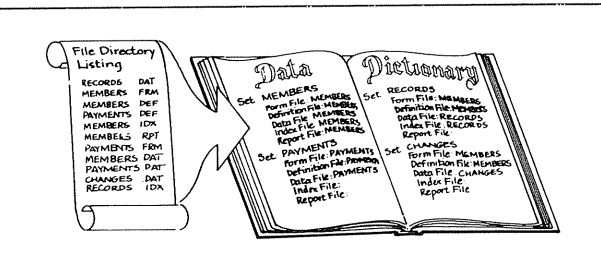 File Directory
Listing
RECORDS DAT
MEMBERS FRM
MEMBERS DEF
PAYMENTS DEF
MEMBERS IDX
MEMBERS RPT
PAYMENTS FRM
MEMBERS DAT
PAYMENTS DAT
CHANGES DAT
RECORDS IDX
Data
Set MEMBERS
Form File: MEMBERS
Definition File: MEMBERS
Data File MEMBERS
Index File MEMBERS
Report File: MEMBERS
Set PAYMENTS
Form File: PAYMENTS
Definition File:
Data File: PAYMENTS
Index File:
Report File:
Dictionary
Set RECORDS
Form File: MEMBERS
Definition File: MEMBERS
Data File: RECORDS
Index File: RECORDS
Report File:
Set CHANGES
Form File MEMBERS
Definition File: MEMBERS
Data File CHANGES
Index File
Report File